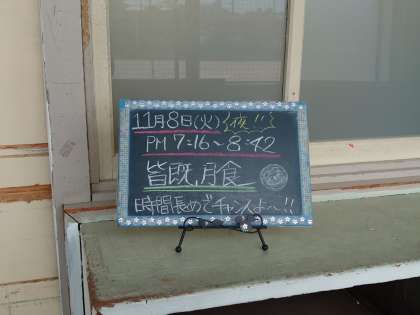 11月8日(火) 夜!!
PM 7:16～8:42
皆既月食
時間長めでチャンスよ～!!